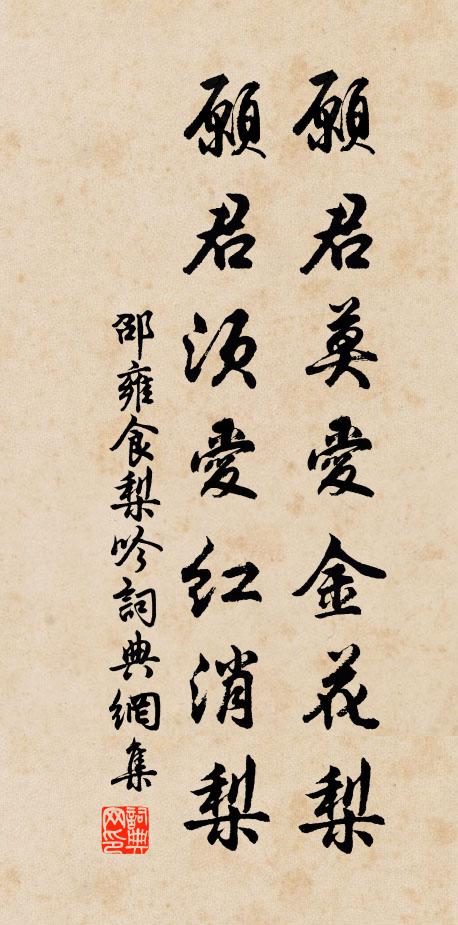 願君莫愛金花梨
願君須愛紅消梨
邵雍食梨吟詞典網集
詞典
网印